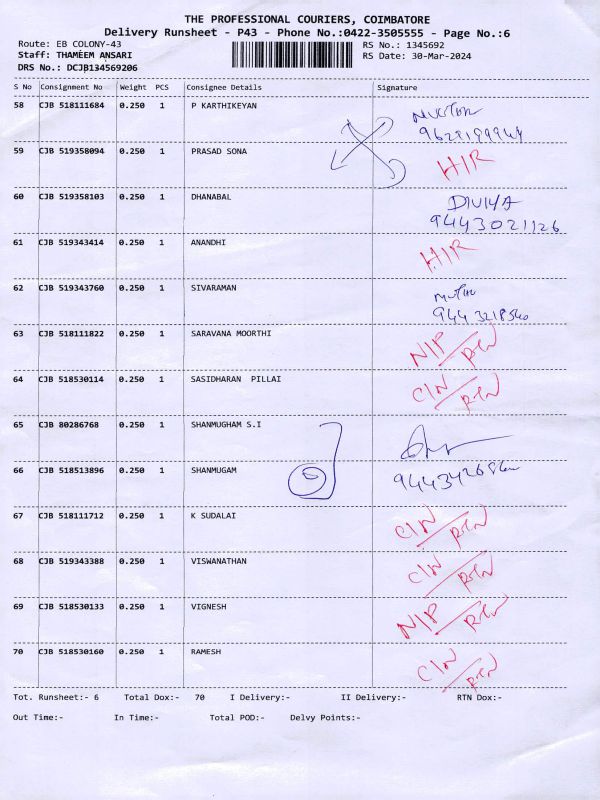 THE PROFESSIONAL COURIERS, COIMBATORE
Delivery Runsheet - P43 - Phone No.:0422-3505555 - Page No.:6
Route: EB COLONY-43
RS No.: 1345692
Staff: THAMEEM ANSARI
RS Date: 30-Mar-2024
DRS No.: DCJB134569206
S No Consignment No Weight PCS Consignee Details Signature
58 CJB 518111684 0.250 1 P KARTHIKEYAN
59 CJB 519358094 0.250 1 PRASAD SONA H/R
60 CJB 519358103 0.250 1 DHANABAL DIVIYA
9443021126
61 CJB 519343414 0.250 1 ANANDHI H/R
62 CJB 519343760 0.250 1 SIVARAMAN
63 CJB 518111822 0.250 1 SARAVANA MOORTHI N/P / RTN
64 CJB 518530114 0.250 1 SASIDHARAN PILLAI C/N / RTN
65 CJB 80286768 0.250 1 SHANMUGHAM S.I
66 CJB 518513896 0.250 1 SHANMUGAM
67 CJB 518111712 0.250 1 K SUDALAI C/N / RTN
68 CJB 519343388 0.250 1 VISWANATHAN C/N / RTN
69 CJB 518530133 0.250 1 VIGNESH N/P / RTN
70 CJB 518530160 0.250 1 RAMESH C/N / RTN
Tot. Runsheet:- 6 Total Dox:- 70 I Delivery:- II Delivery:- RTN Dox:-
Out Time:- In Time:- Total POD:- Delvy Points:-